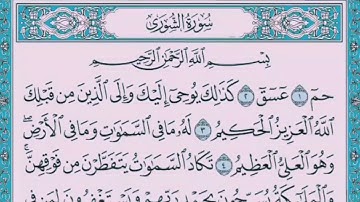 سُورَةُ الشُّورَىٰ
بِسْمِ اللَّهِ الرَّحْمَٰنِ الرَّحِيمِ
حمٓ ١ عٓسٓقٓ ٢ كَذَٰلِكَ يُوحِىٓ إِلَيْكَ وَإِلَى الَّذِينَ مِن قَبْلِكَ
اللَّهُ الْعَزِيزُ الْحَكِيمُ ٣ لَهُۥ مَا فِى السَّمَٰوَٰتِ وَمَا فِى الْأَرْضِ ۖ
وَهُوَ الْعَلِىُّ الْعَظِيمُ ٤ تَكَادُ السَّمَٰوَٰتُ يَتَفَطَّرْنَ مِن فَوْقِهِنَّ ۚ
وَالْمَلَٰٓئِكَةُ يُسَبِّحُونَ بِحَمْدِ رَبِّهِمْ وَيَسْتَغْفِرُونَ لِمَن فِى